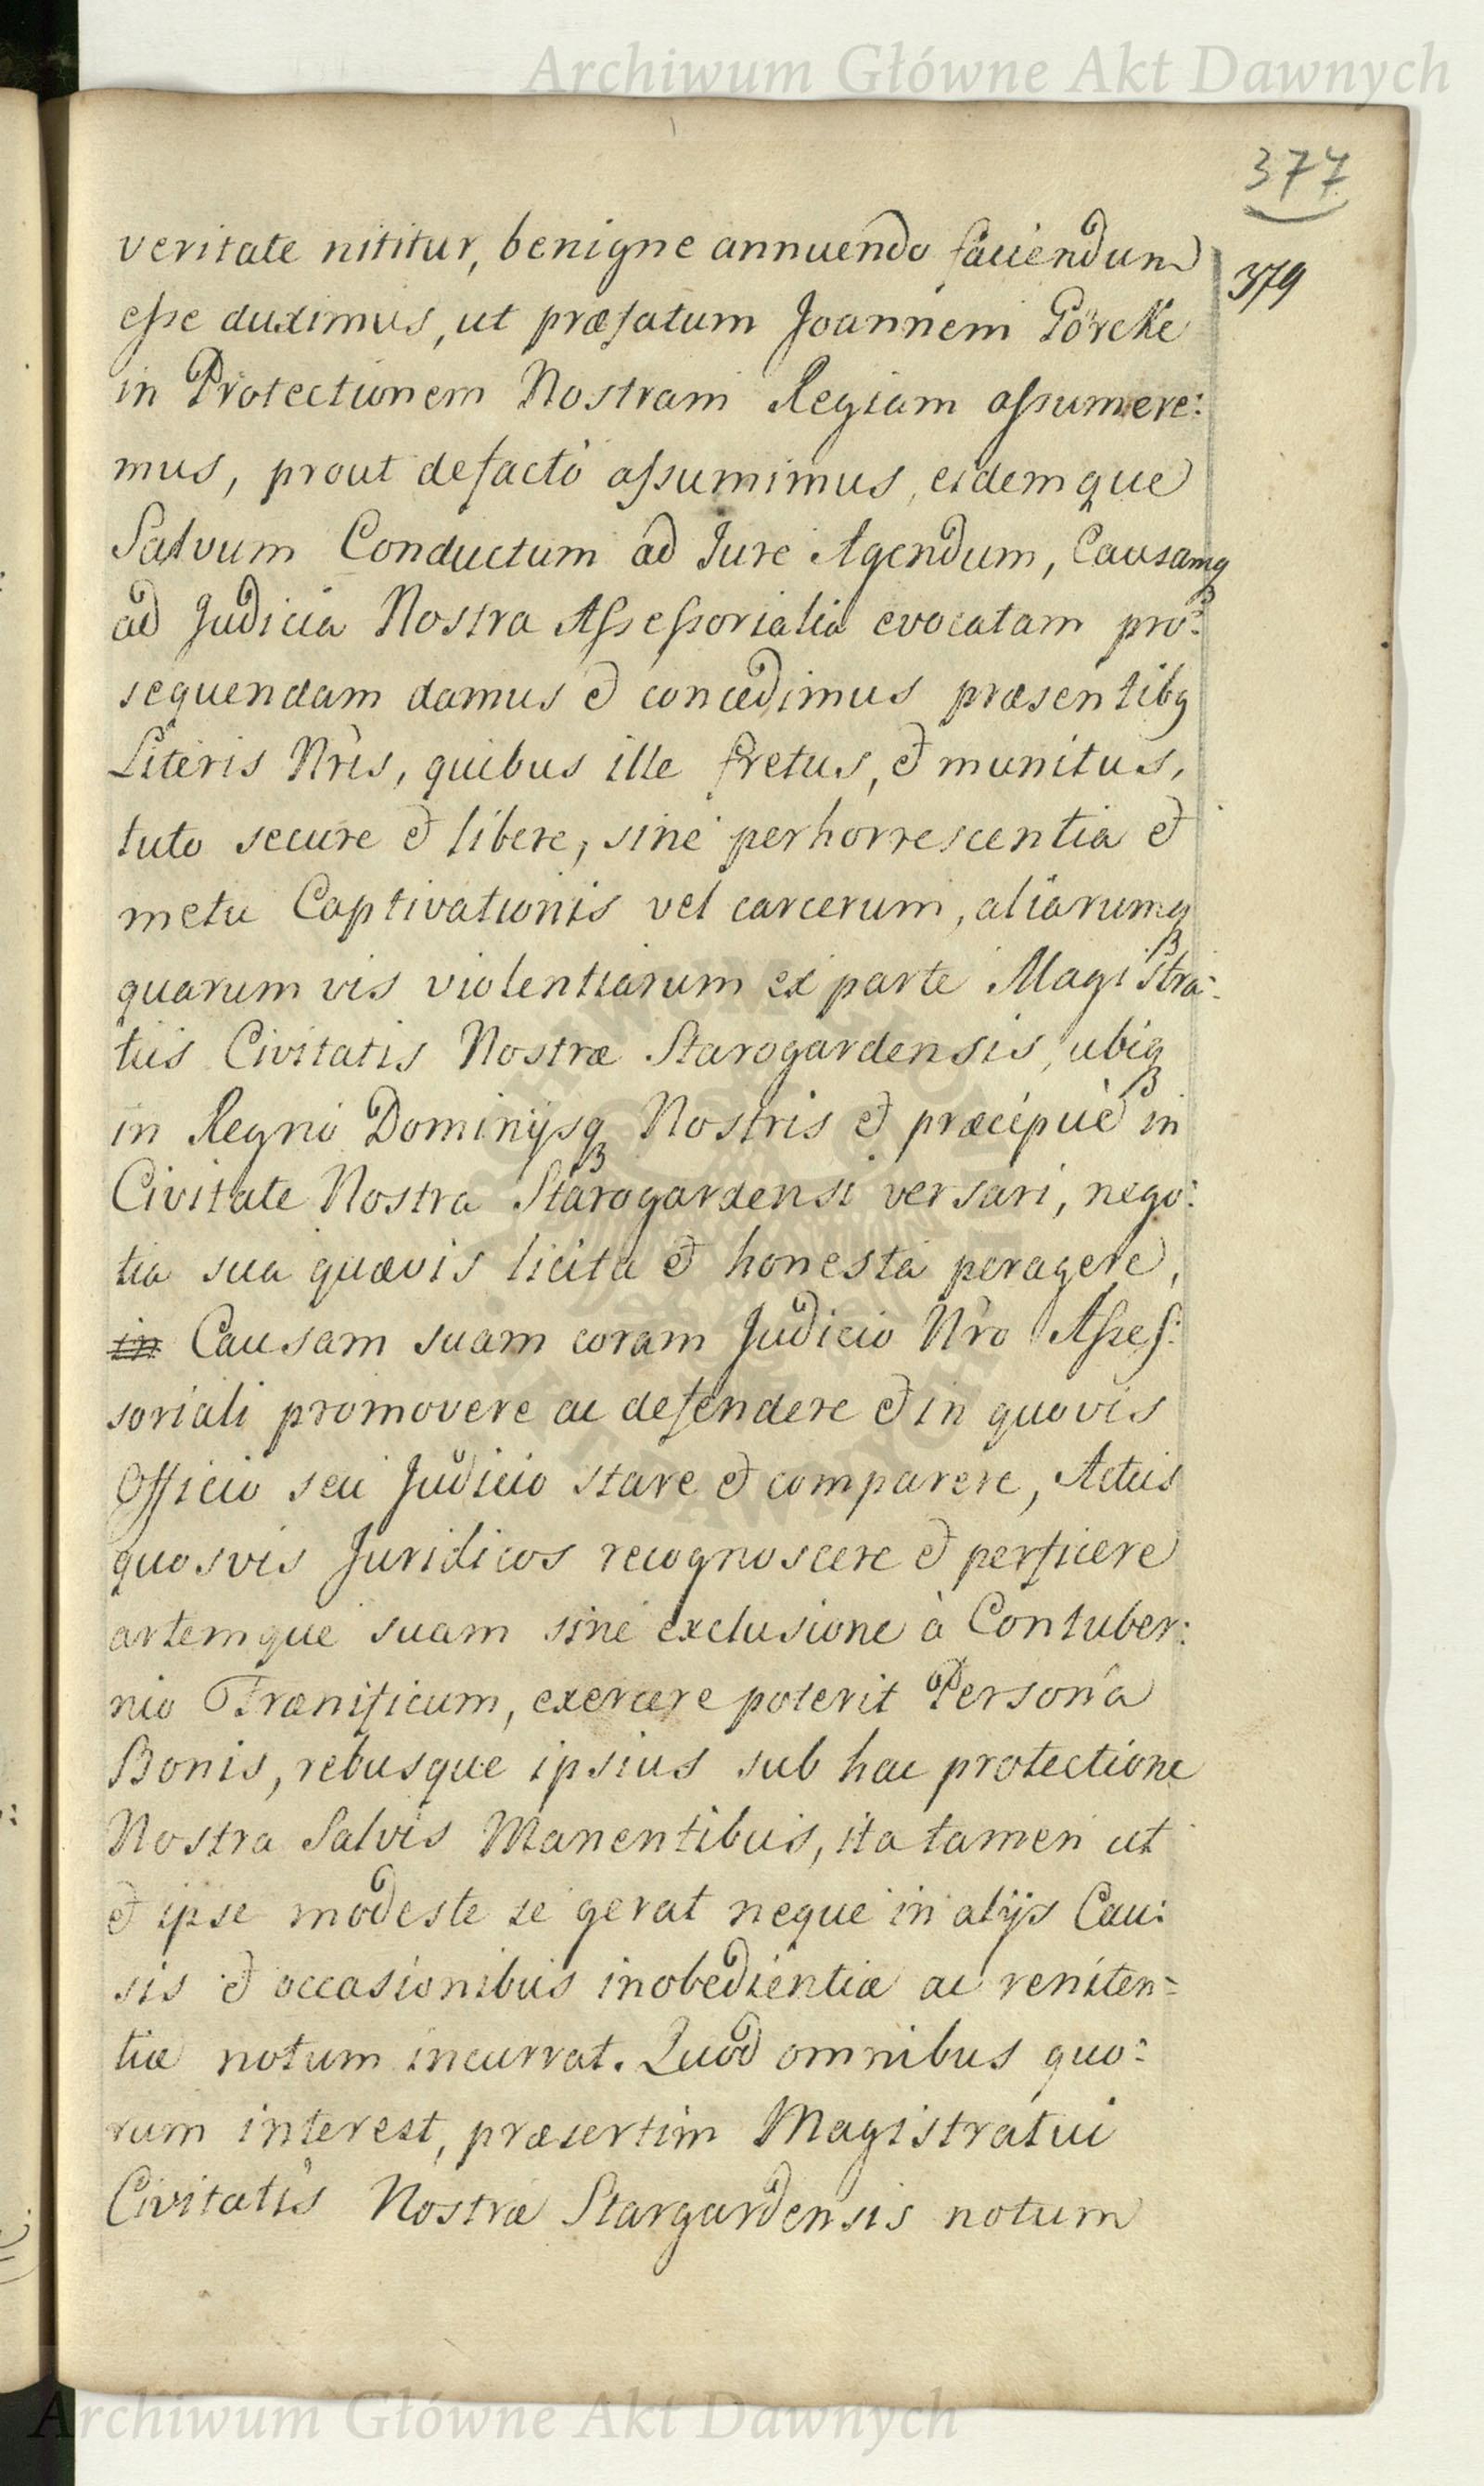 Archiwum Główne Akt Dawnych
377
379
veritate nititur, benigne annuendo faciendum
esse duximus, ut præfatum Joannem Görcke
in Protectionem Nostram Regiam assumere:
mus, prout defacto assumimus, eidemque
Salvum Conductum ad Jure Agendum, Causamq
ad Judicia Nostra Assessorialia evocatam pro:
sequendam damus et concedimus præsentibq
Literis Nris, quibus ille fretus, et munitus,
tuto secure et libere, sine perhorrescentia et
metu Captivationis vel carcerum, aliarumq
quarum vis violentiarum ex parte Magistra:
tus Civitatis Nostræ Starogardensis, ubiq
in Regno Dominijsq Nostris et præcipuè in
Civitate Nostra Starogardensi versari, nego:
tia sua quævis licita et honesta peragere,
in Causam suam coram Judicio Nro Asses:
soriali promovere ac defendere et in quovis
Officio seu Judicio stare et comparere, Actus
quosvis Juridicos recognoscere et perficere
artemque suam sine exclusione à Contuber:
nio Frænificum, exercere poterit Persona
Bonis, rebusque ipsius sub hac protectione
Nostra Salvis Manentibus, ita tamen ut
et ipse modeste se gerat neque in alijs Cau:
sis et occasionibus inobedientiæ ac reniten=
tiæ notum incurrat. Quod omnibus quo:
rum interest, præsertim Magistratui
Civitatis Nostræ Stargardensis notum
Archiwum Główne Akt Dawnych